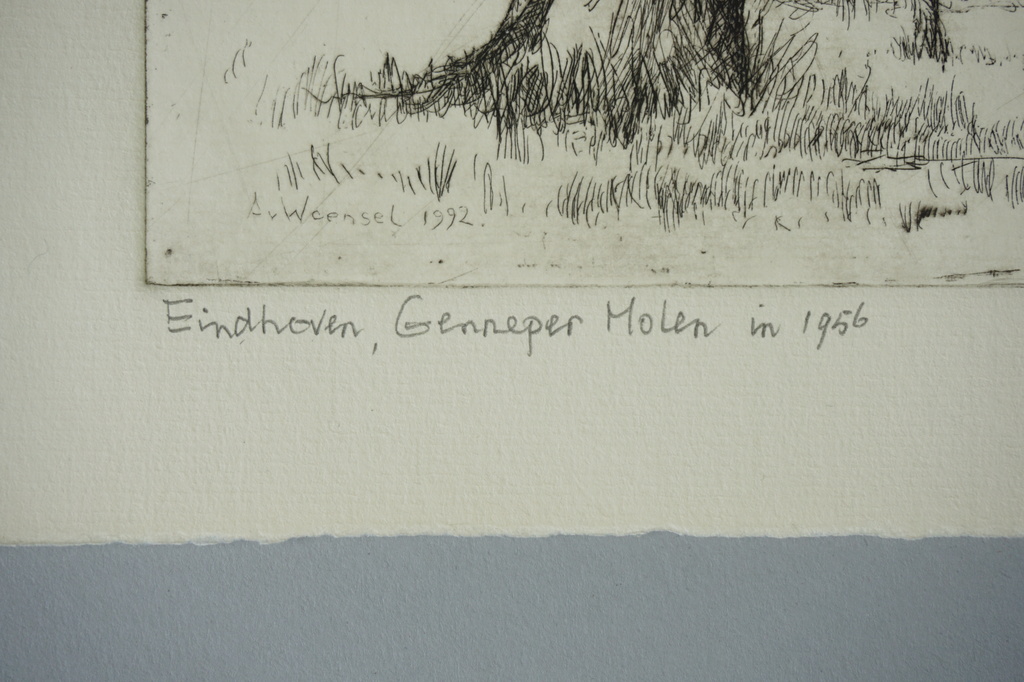 A.v.Woensel 1992.
Eindhoven, Genneper Molen in 1956